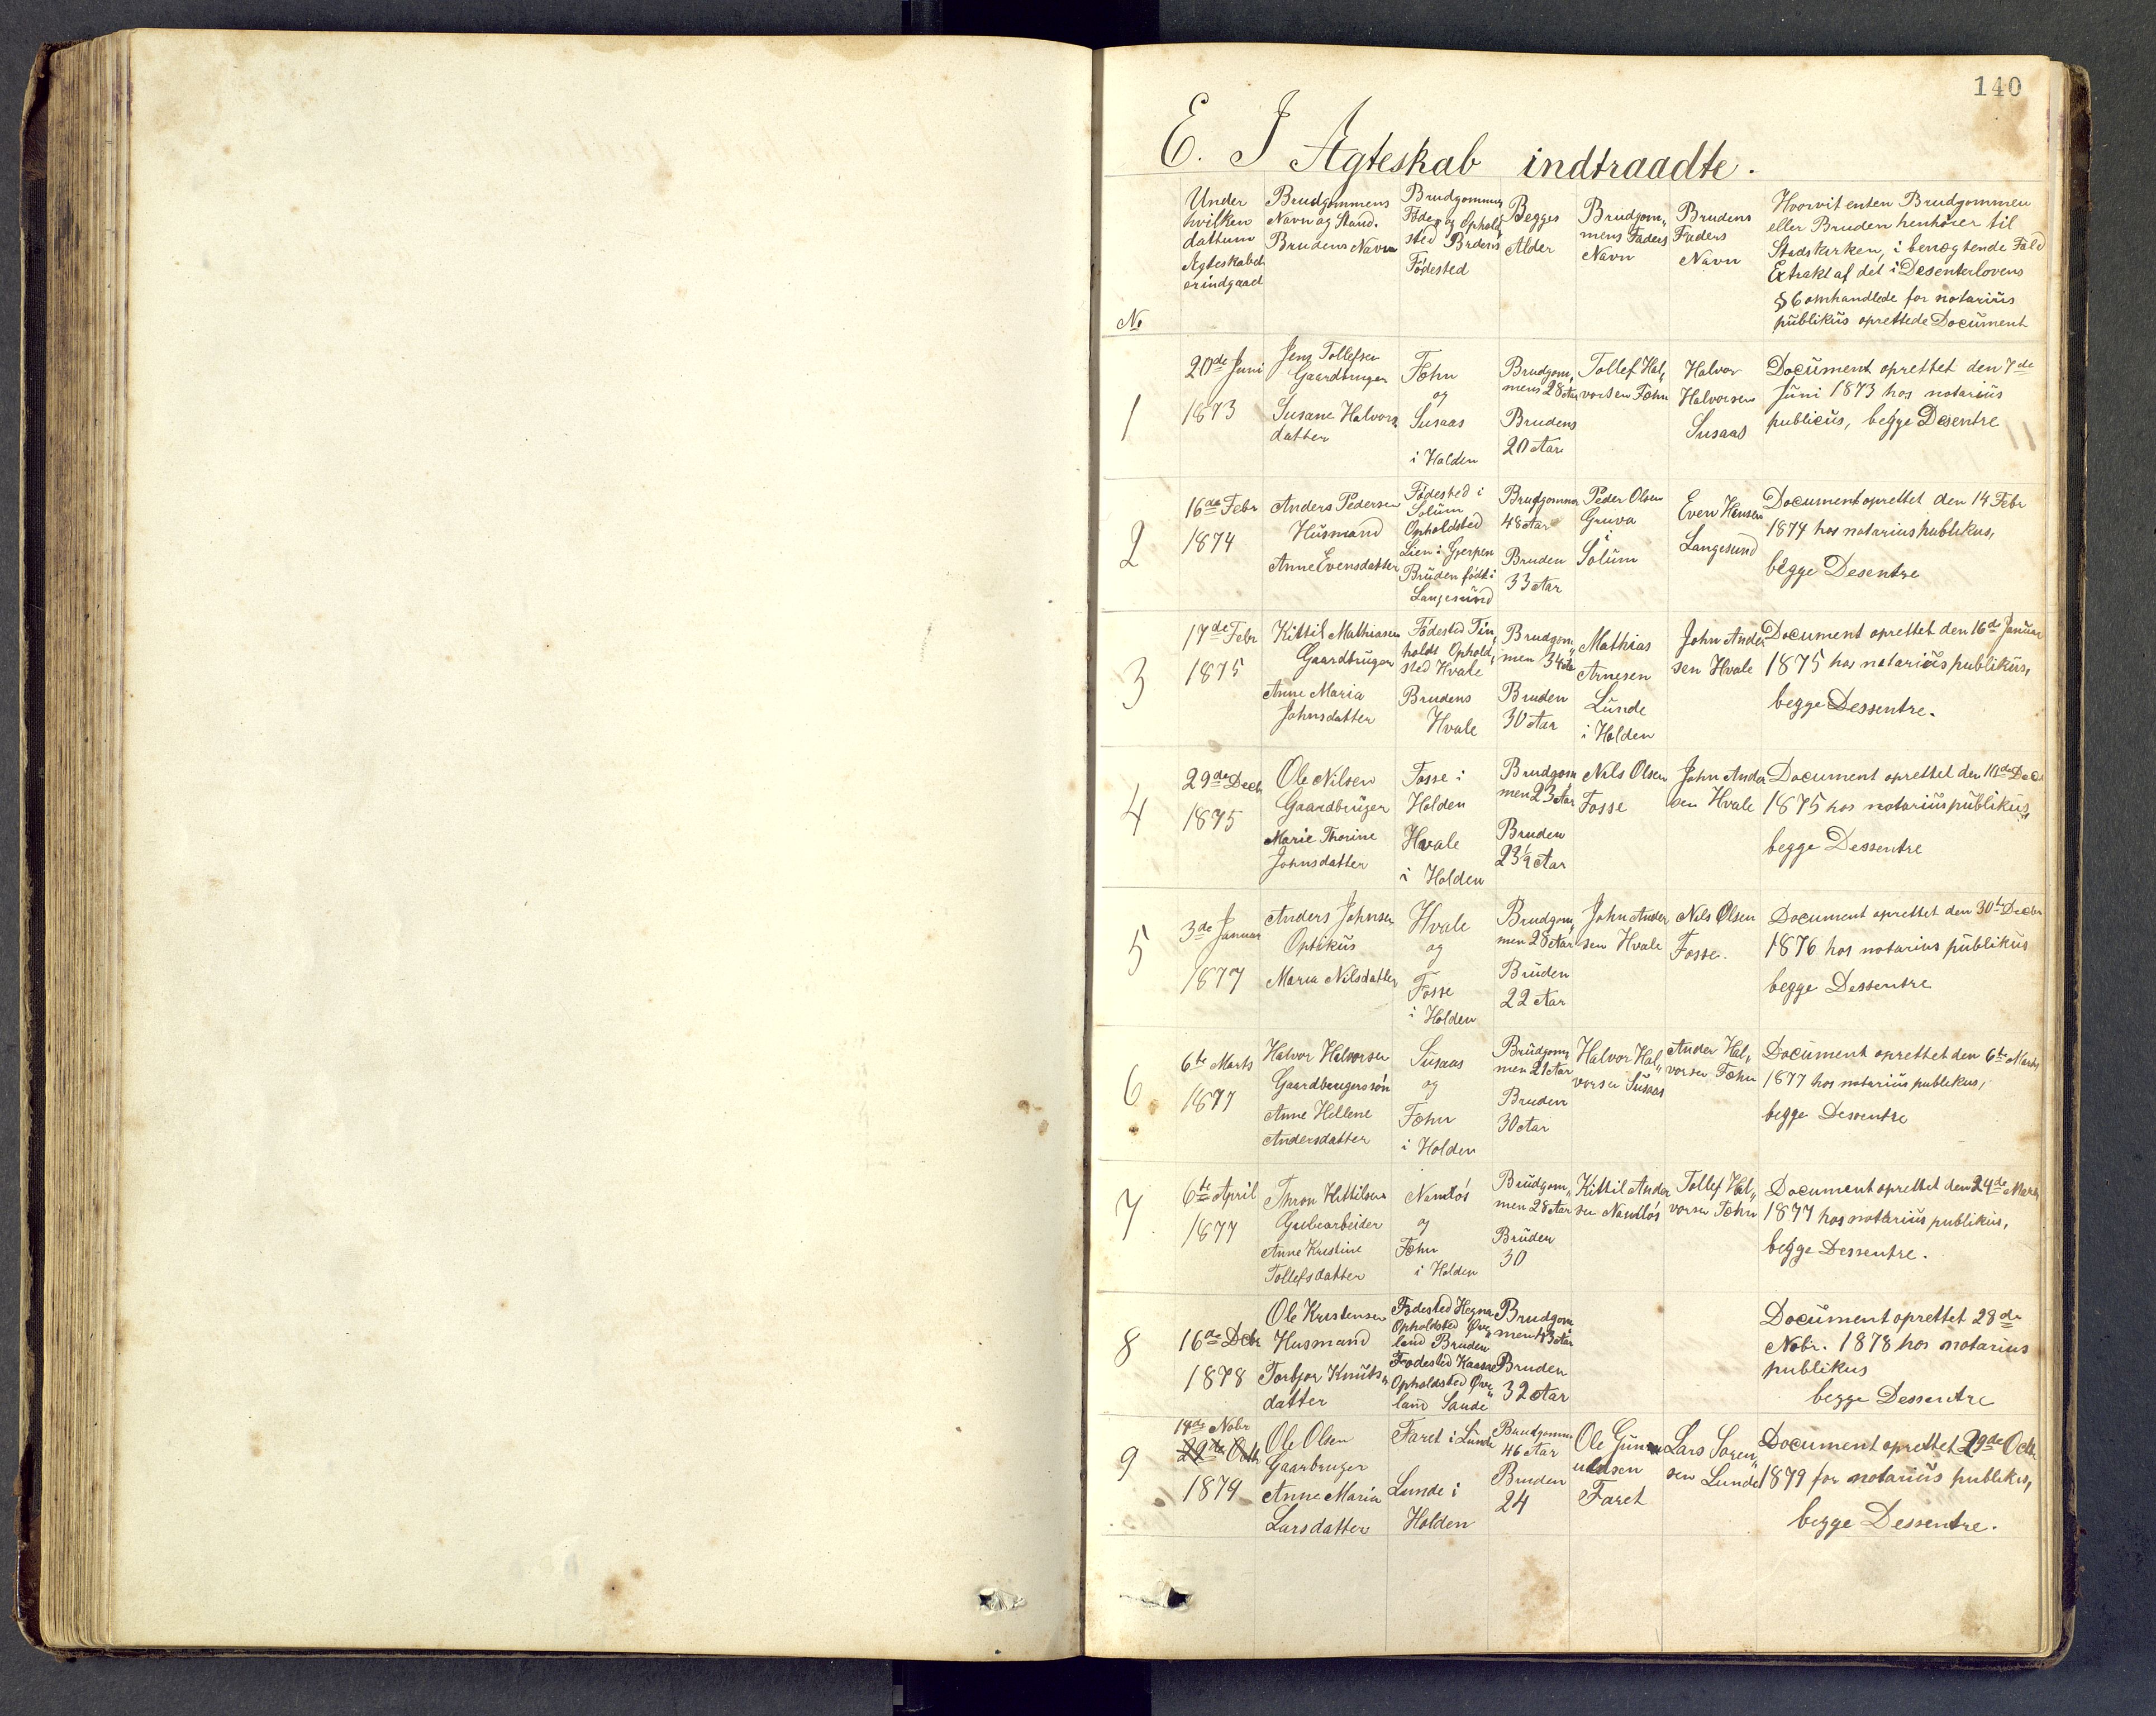 140
E. I Ægteskab indtraadte.
No
Under
hvilken
dattum
Ægteskabet
er indgaaet
Brudgommens
Navn og Stand.
Brudens Navn
Brudgommens
Føde og Ophold
sted Brudens
Fødested
Begges
Alder
Brudgom„
mens Faders
Navn
Brudens
Faders
Navn
Hvorvit enten Brudgommen
eller Bruden henhører til
Stadskirken, i benægtende Fald
Extrakt af det i Desenterlovens
§ 6 omhandlede for notarius
publikus oprettede Document
1
20de Juni
1873
Jens Tollefsen
Gaardbruger
Susane Halvors
datter
Fæhn
og
Susaas
i Holden
Brudgom„
mens 28 Aar
Brudens
20 Aar
Tollef Hal„
vorsen Fæhn
Halvor
Halvorsen
Susaas
Document oprettet den 7de
Juni 1873 hos notarius
publicus, begge Desentre
2
16de Febr
1874
Anders Pedersen
Husmand
Anne Evensdatter
Fødested i
Solum
Opholdsted
Lien i Gjerpen
Bruden født i
Langesund
Brudgommen
48 Aar
Bruden
33 Aar
Peder Olsen
Gruva
i
Solum
Even Hansen
Langesund
Document oprettet den 14 Febr
1874 hos notarius publikus,
begge Desentre
3
17de Febr
1875
Kittil Mathiasen
Gaardbruger
Anne Maria
Johnsdatter
Fødested Tin„
holdt Ophold„
sted Hvale
Brudens
Hvale
Brudgom„
men 34 Aar
Bruden
30 Aar
Mathias
Arnesen
Lunde
i Holden
John Ander
sen Hvale
Document oprettet den 16de Januar
1875 hos notarius publikus,
begge Dessentre.
4
29de Decb
1875
Ole Nilsen
Gaardbruger
Marie Thorine
Johnsdatter
Fosse i
Holden
Hvale
i Holden
Brudgom
men 23 Aar
Bruden
23½ Aar
Nils Olsen
Fosse
John Ander
sen Hvale
Document oprettet den 10de Dec
1875 hos notarius publikus,
begge Dessentre
5
3de Januar
1877
Anders Johnsen
Optikus
Maria Nilsdatter
Hvale
og
Fosse
i Holden
Brudgom„
men 28 Aar
Bruden
22 Aar
John Ander
sen Hvale
Nils Olsen
Fosse.
Document oprettet den 30te Decbr
1876 hos notarius publikus
begge Dessentre
6
6te Marts
1877
Halvor Halvorsen
Gaardbrugersøn
Anne Hellene
Andersdatter
Susaas
og
Fæhn
i Holden
Brudgom„
men 21 Aar
Bruden
30 Aar
Halvor Hal„
vorsen Susaas
Ander Hal„
vorsen Fæhn
Document oprettet den 6te Marts
1877 hos notarius publikus,
begge Dessentre
7
6te April
1877
Thron Kittilsen
Grubearbeider
Anne Kristine
Tollefsdatter
Namløs
og
Fæhn
i Holden
Brudgom„
men 28 Aar
Bruden
30
Kittil Ander
sen Namløs
Tollef Hal„
vorsen Fæhn
Document oprettet den 24de Marts
1877 hos notarius publikus,
begge Dessentre.
8
16de Debr
1878
Ole Kristensen
Husmand
Torbjor Knuts„
datter
Fødested Hegna
Opholdsted Øve„
land Bruden
Fødested Kaasa
Opholdsted Øve„
land Saude
Brudgom
men 43 Aar
Bruden
32 Aar
Document oprettet 28de
Nobr. 1878 hos notarius
publikus
begge Dessentre
9
14de Nobr
29de Octb
1879
Ole Olsen
Gaarbruger
Anne Maria
Larsdatter
Faret i Lunde
Lunde i
Holden
Brudgommen
46 Aar
Bruden
24
Ole Gunn
uldsen
Faret
Lars Soren„
sen Lunde
Document oprettet 29de Octb.
1879 for notarius publikus,
begge Dessentre.